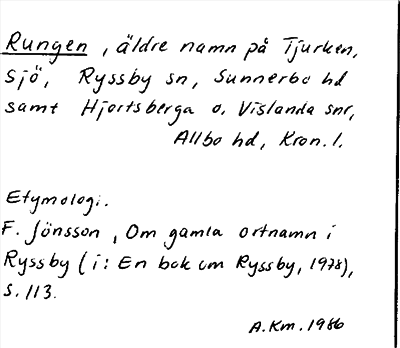 Rungen, äldre namn på Tjurken,
sjö, Ryssby sn, Sunnerbo hd
samt Hjortsberga o. Vislanda snr,
Allbo hd, Kron. l.
Etymologi.
F. Jönsson, Om gamla ortnamn i
Ryssby (i: En bok om Ryssby, 1978),
s. 113.
A.Km. 1986